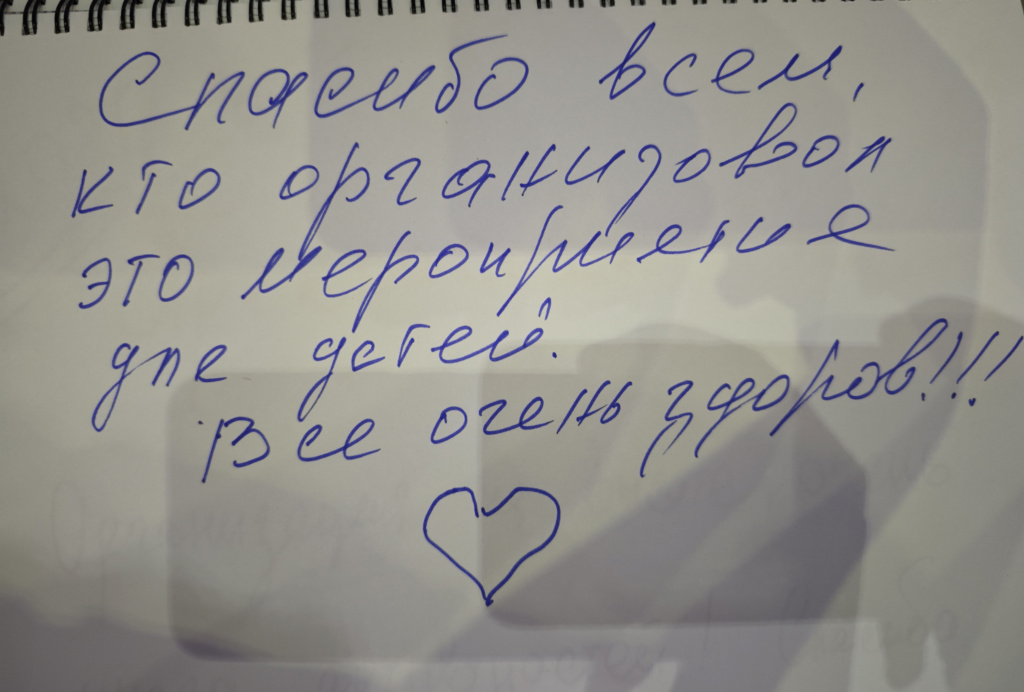 Спасибо всем,
кто организовал
это мероприятие
для детей.
Все очень здоров!!!